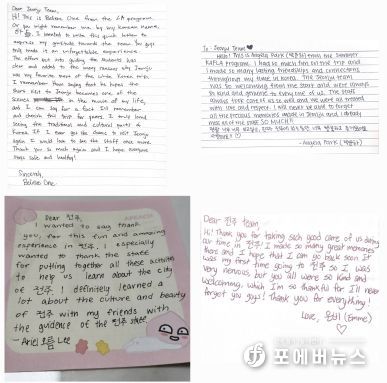 Dear Jeonju Team,
Hi! This is Belinee Chea from the LA programe
Or you might remember me by my Korean name,
I wanted to write this quick letter to
express my gratitude towards the team for guys
that made it an unforgettable experience.
The effort put into guiding the students was
clear and added to the many reasons why Jeonju
was my favorite part of the whole Korea trip.
I remember them saying that he hopes the
short visit to Jeonju becomes one of the
scenes in the movie of my life,
and I can say for a fact I'll remember
and cherish this trip for years. I truly loved
seeing the traditional and cultural parts of
Korea. If I ever get the chance to visit Jeonju
again I would love to see the staff once more.
Thank you so much again and I hope everyone
stays safe and healthy!
Sincerely,
Belinee Chea
To - Jeonju Team
Hello! This is Angela Park from the summer
KAFLA Programe. I had so much fun on the trip and
I made so many lasting friendships and connections
throughout my time in Korea. The Jeonju team
was so welcoming from the start and were always
so kind and genuine to every one of us. The staff
always took care of us so well and we were all treated
with love and respect. I will never be able to forget
all the precious memories made in Jeonju and I already
miss all of the staff SO MUCH!!
- Angela Park
Dear 전주,
I wanted to say thank
you, for this fun and amazing
experience in 전주. I especially
wanted to thank the staff
for putting together all these activities
to help us learn about the city
of 전주. I definitely learned a
lot about the culture and beauty
of 전주 with my friends with
the guidence of the 전주 staff.
-Ariel Lee
APEACH
Dear 전주 team,
Hi! Thank you for taking such good care of us during
our time in 전주! I made so many great memories
there and I hope that I can go back soon. It
was my first time going to 전주 so I was
very nervous, but you all were so kind and
welcomming, which I'm so thankful for. I'll never
forget you guys! Thank you for everything!
Love, (Emme)
포에버뉴스